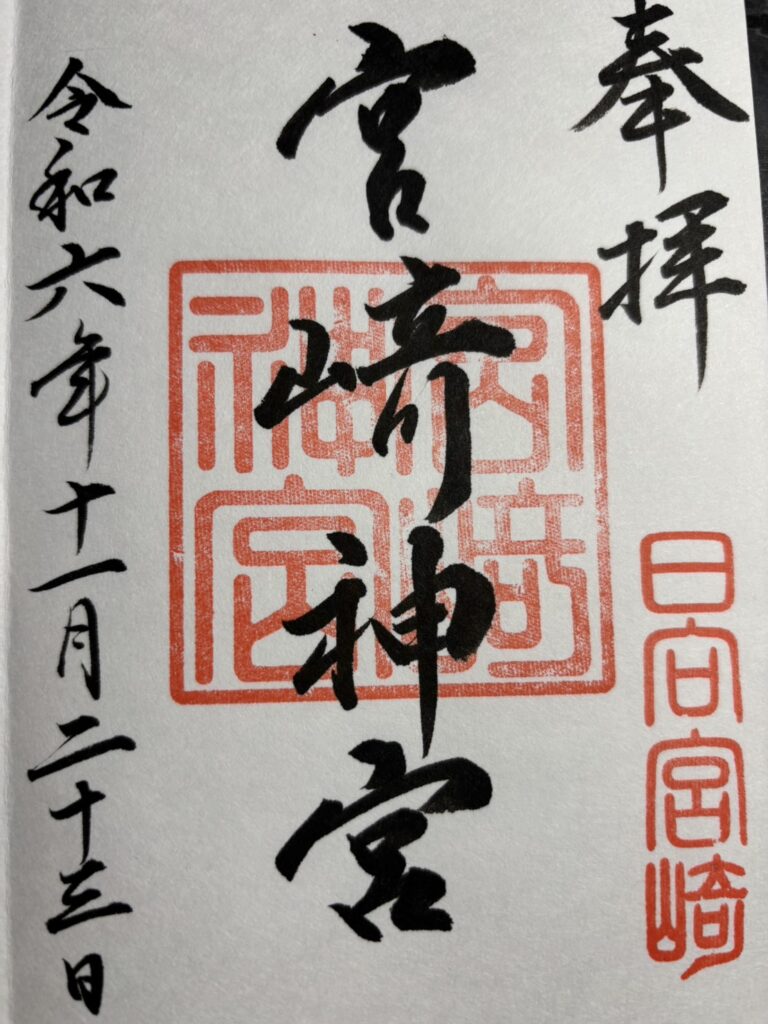 奉拝
日向宮﨑
宮﨑神宮
宮﨑神宮
令和六年十一月二十三日